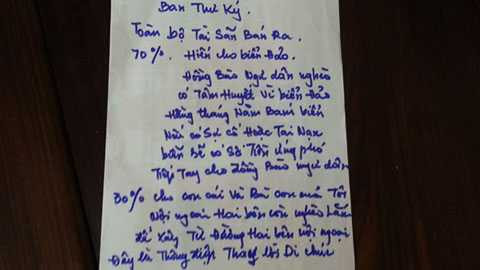 Ban Thư Ký.
Toàn bộ Tài Sản Bán Ra.
70%. Hiến cho biển Đảo.
Đồng Bào Ngư dân nghèo
có Tâm Huyết Vì biển Đảo
Hằng tháng Năm Bám biển
Nếu có Sự cố Hoặc Tai Nạn
bản sẽ có Số Tiền ứng phó
Tiếp Tay cho Đồng Bào ngư dân
30% cho con cái Và Bà con của Tôi
Nội ngoại Hai bên còn nghèo Lắm
để Xây Từ Đường Hai bên nội ngoại
Đây là Thông điệp Thay lời Di chúc